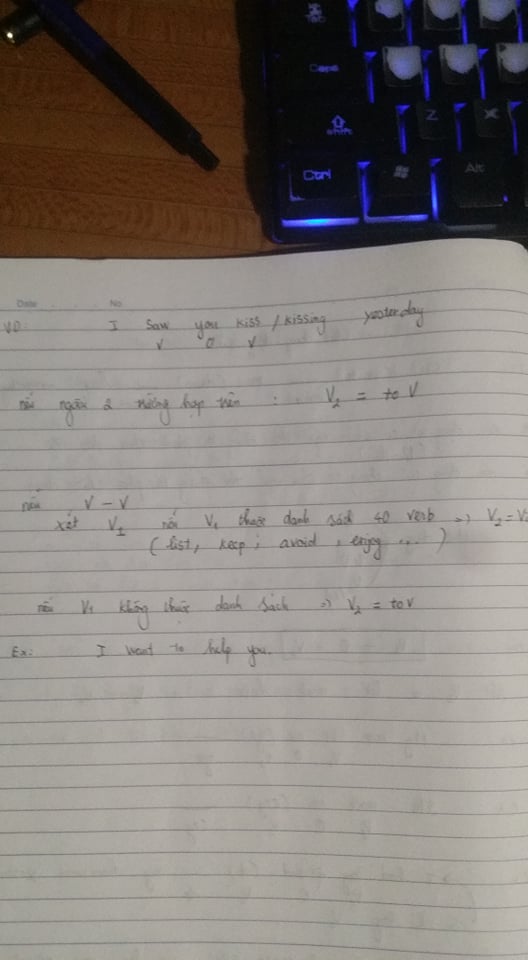 Tab
Caps
Shift
Z
X
Ctrl
Alt
Date No
VD: I saw you kiss / kissing yesterday
V O V
nếu ngoài 2 trường hợp trên : V2 = to V
nếu V - V
xét V1 nếu V1 thuộc danh sách 40 verb => V2 =
(list, keep, avoid, enjoy ... )
nếu V1 không thuộc danh sách => V2 = to V
Ex: I want to help you.